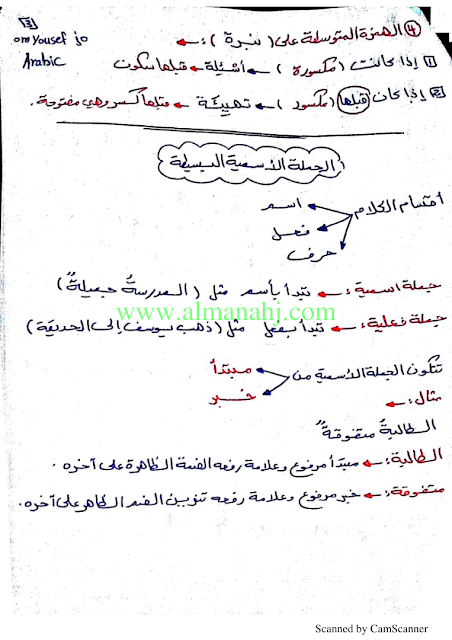 [3]
om Yousef jo
Arabic
④ الهمزة المتوسطة على (نبرة):
1 إذا كانت (مكسورة) أسئلة قبلها سكون
2 إذا كان قبلها (مكسور) تهيئة قبلها كسر وهي مفتوحة.
الجملة الاسمية البسيطة
أقسام الكلام
اسم
فعل
حرف
جملة اسمية: تبدأ بأسم مثل (المدرسةُ جميلةٌ)
www.almanahj.com
جملة فعلية: تبدأ بفعل مثل (ذهب يوسف إلى الحديقة)
تتكون الجملة الاسمية من
مبتدأ
خبر
مثال:
الطالبةُ متفوقةٌ
الطالبة: مبتدأ مرفوع وعلامة رفعه الضمة الظاهرة على آخره.
متفوقة: خبر مرفوع وعلامة رفعه تنوين الضم الظاهر على آخره.
Scanned by CamScanner